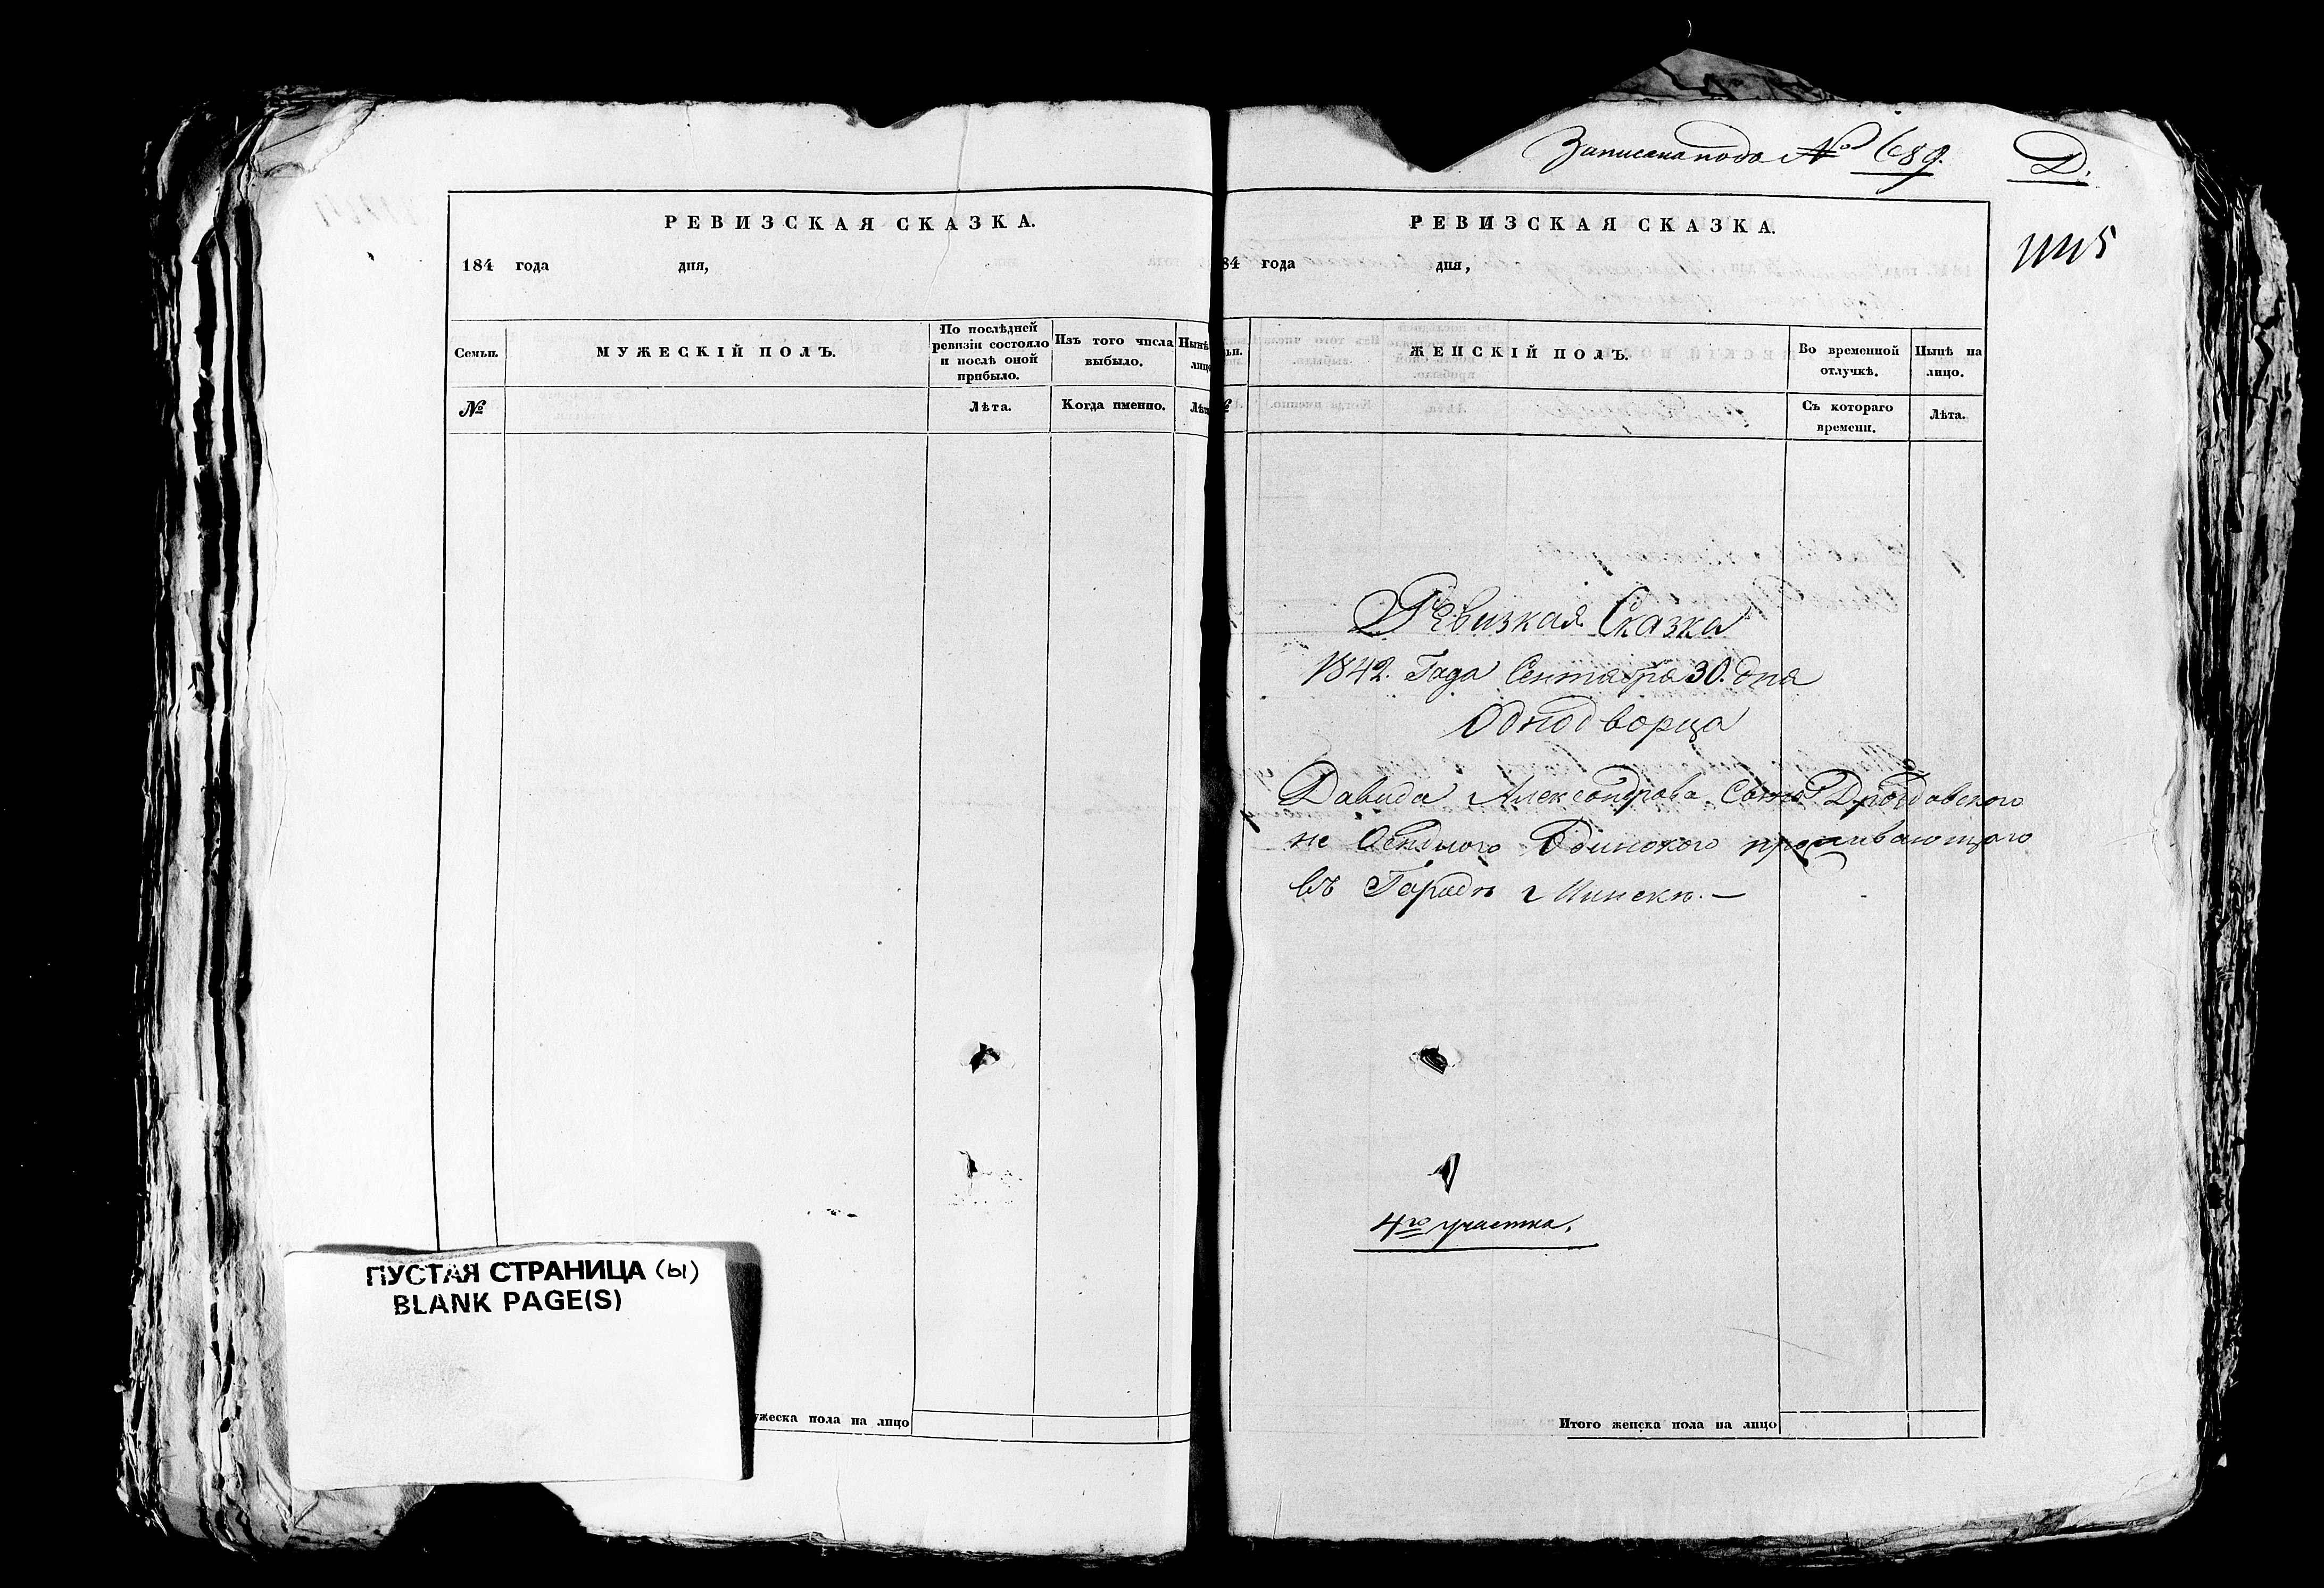 РЕВИЗСКАЯ СКАЗКА.
184 года дня,
Семьи.
МУЖЕСКІЙ ПОЛЪ.
По послѣдней
ревизіи состояло
и послѣ оной
прибыло.
Изъ того числа
выбыло.
Нынѣ
лицо
№
Лѣта.
Когда именно.
Лѣта
ПУСТАЯ СТРАНИЦА (Ы)
BLANK PAGE(S)
ужеска пола на лицо
Записана подъ № 689.
Д.
РЕВИЗСКАЯ СКАЗКА.
84 года дня,
ьи.
ЖЕНСКІЙ ПОЛЪ.
Во временной
отлучкѣ.
Нынѣ на
лицо.
Съ котораго
времени.
Лѣта.
Ревизкая Сказка
1842. Года Сентября 30. дня
Однодворца
Давида Александрова Сына
не Осѣдлого Одинокого проживающого
въ Городѣ Минскѣ. —
4го участка.
Итого женска пола на лицо